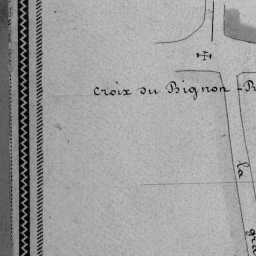 Croix du Bignon
la